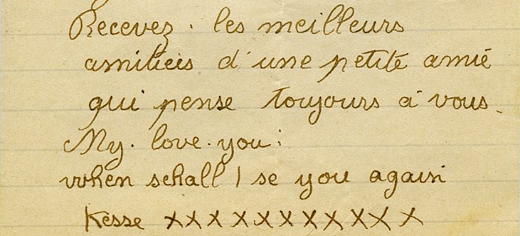 Recevez . les meilleurs
amitiées d'une petite amié
qui pense toujours à vous.
My . love . you :
when schall I se you again
Kesse xxxxxxxxxxx